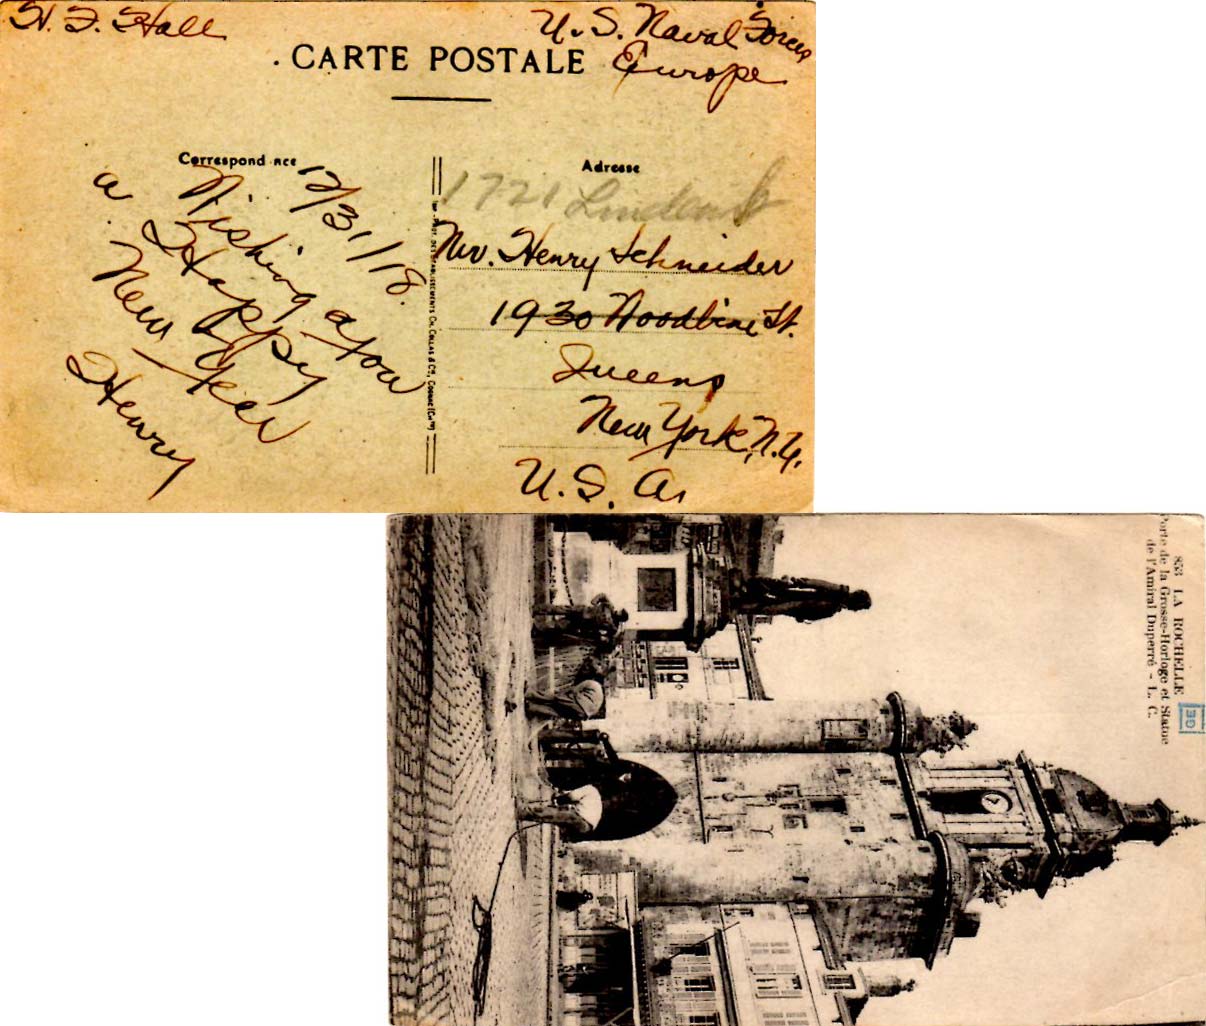 H. F. Hall
U. S. Naval Forces
Europe
CARTE POSTALE
Correspondance
12/31/18.
Wishing you
a Happy
New Year
Henry
IMP.-PHOT. DES ETABLISSEMENTS CH. COLLAS & Cie, COGNAC
Adresse
1721 Linden St
Mr. Henry Schneider
1930 Woodbine St.
Queens
New York, N.Y.
U. S. A.
853 LA ROCHELLE
Porte de la Grosse-Horloge et Statue
de l'Amiral Duperré - L. C.
GE